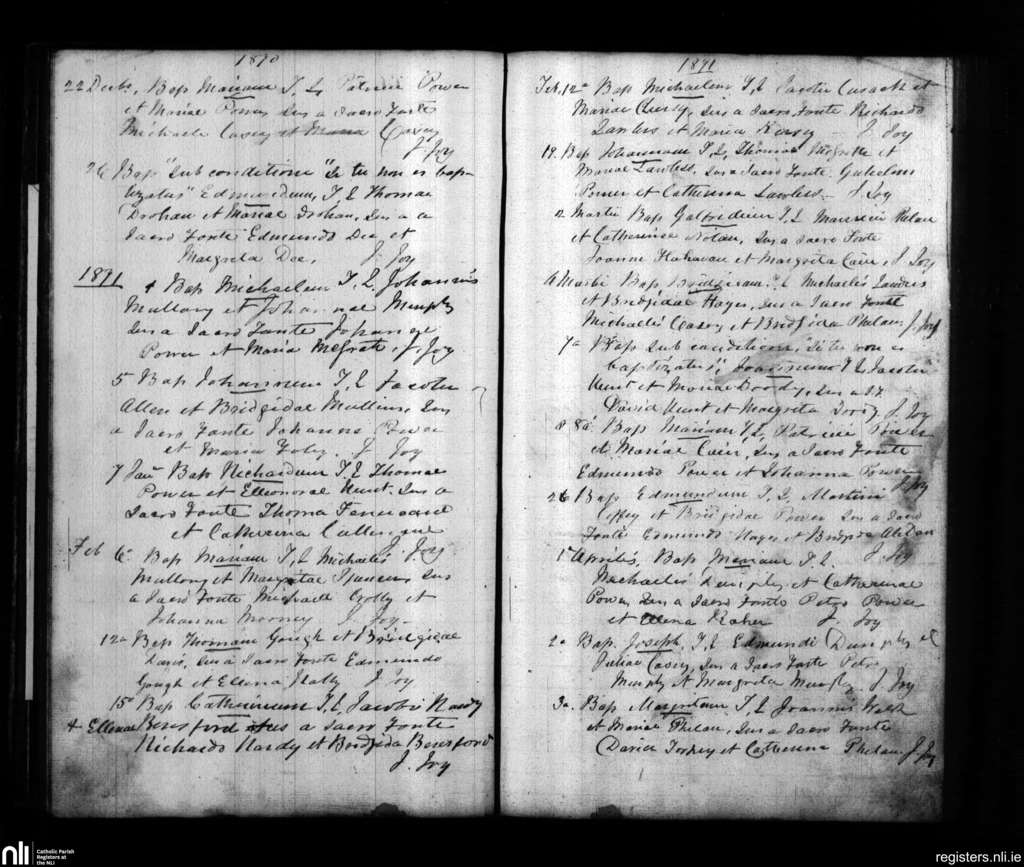 1890
22 Decbr, Bap Mariam F, L, Patricii Power
et Mariae Power, Sus a Sacro Fonte
Michaele Casey et Maria Casey
J. Joy
26 Bap "Sub conditione" "Si tu non es bap-
tizatus" Edmundum, F, L Thomae
Drohan et Mariae Drohan, Sus a a
Sacro Fonte Edmundo Dee et
Margreta Dee, J. Joy
1891
4 Bap Michaelem F, L, Johannis
Mullony et Johannae Murphy
Sus a Sacro Fonte Johanne
Power et Maria McGrath, J. Joy
5 Bap Johannem F, L Jacobi
Allen et Bridgidae Mullins, Sus
a Sacro Fonte Johanne Power
et Maria Foley. J Joy
7 Jan Bap Richardum F, L Thomae
Power et Elleonorae Hunt. Sus a
Sacro Fonte Thoma
et Catherina
J. Joy
Feb 6 Bap Mariam F, L, Michaelis
Mullony et Margretae Sus
a Sacro Fonte Michaele Crotty et
Johanna Mooney J. Joy
12a Bap Thomam Gough et Bridgidae
Davis, Sus a Sacro Fonte Edmundo
Gough et Ellena J. Joy
15a Bap Catherinam F, L Jacobi Hardy
+ Ellenae Beresford Sus a Sacro Fonte
Richardo Hardy et Bridgida Beresford
J. Joy
1891
Feb, 12a Bap Michaelem F, L Jacobi Cusack et
Mariae Sus a Sacro Fonte Richardo
Lawless et Maria J. Joy
19. Bap Johannem F, L, Thomae McGrath et
Mariae Lawless, Sus a Sacro Fonte Gulielmo
Power et Catherina Lawless. J. Joy
2 Martii Bap Galfridum F, L Mauricii Phelan
et Catherinae Nolan, Sus a Sacro Fonte
Joanne et Margreta Cain, J. Joy
6 Martii Bap Bridgidam F, L Michaelis
et Bridgidae Hayes, Sus a Sacro Fonte
Michaele Casey et Bridgida Phelan, J. Joy
7a Bap sub conditione, "Si tu non es
baptizatus", Joannem F L Jacobi
Hunt et Mariae Sus a S.F.
David Hunt et Margreta J. Joy
8 Bap Mariam F, L, Patricii Power
et Mariae Cain, Sus a Sacro Fonte
Edmundo Power et Johanna Power
J. Joy
26 Bap Edmundum F, L, Martini
Coffey et Bridgidae Power Sus a Sacro
Fonte Edmundo Hayes et Bridgida
J. Joy
1a Aprilis, Bap Mariam F. L.
Michaelis et Catherinae
Power, Sus a Sacro Fonte Petro Power
et Ellena Kaher J. Joy
2a Bap. Joseph F, L Edmundi Dunphy et
Juliae Casey, Sus a Sacro Fonte Petro
Murphy et Margreta Murphy. J. Joy
3a. Bap Margretam F, L Joannis Walsh
et Mariae Phelan, Sus a Sacro Fonte
David et Catherina Phelan, J. Joy
nli
Catholic Parish
Registers at
the NLI
registers.nli.ie